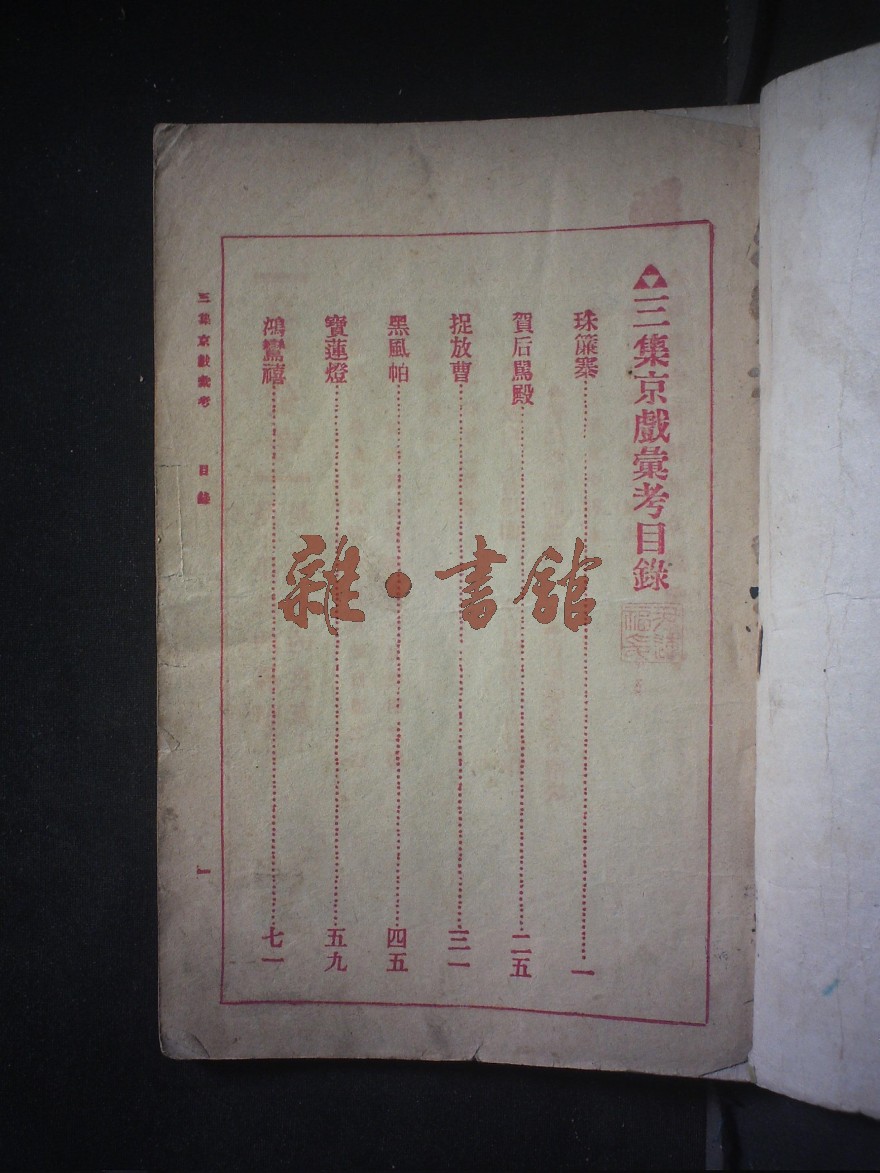 三集京戲彙考目錄
珠簾寨……一
賀后駡殿……二五
捉放曹……三一
黑風帕……四五
寶蓮燈……五九
鴻鸞禧……七一
三集京戲彙考 目錄 一
雜·書館